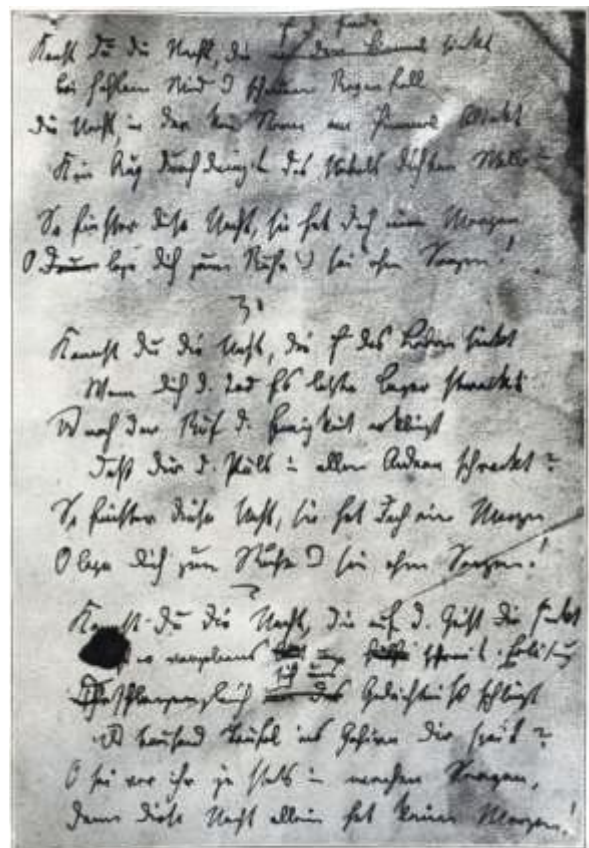 f d. Erde
Kennst du die Nacht, die sinkt
bei hohlem Wind u schwerem Regenfall
die Nacht, in der kein Stern am Himmel blinkt
Kein Aug durchdringt des Nebels dichten Wall
So finster diese Nacht, sie hat doch einen Morgen
O lege dich zur Ruhe u sei ohne Sorgen!
2.
Kennst du die Nacht, die f das Leben sinkt
Wenn dich d. Tod fs letzte Lager streckt
U nah der Ruf d. Ewigkeit erklingt
Daß dir d. Puls in allen Adern schreckt?
So finster diese Nacht, sie hat doch einen Morgen
O lege dich zur Ruhe u sei ohne Sorgen!
3
Kennst du die Nacht, die auf d. Geist dir sinkt
er vergebens um schreit Erlösung
sich ums
schlangengleich Gedächtniß schlingt
U tausend Teufel ins Gehirn dir speit?
O sei vor ihr ja stets in wachen Sorgen,
Denn diese Nacht allein hat keinen Morgen!